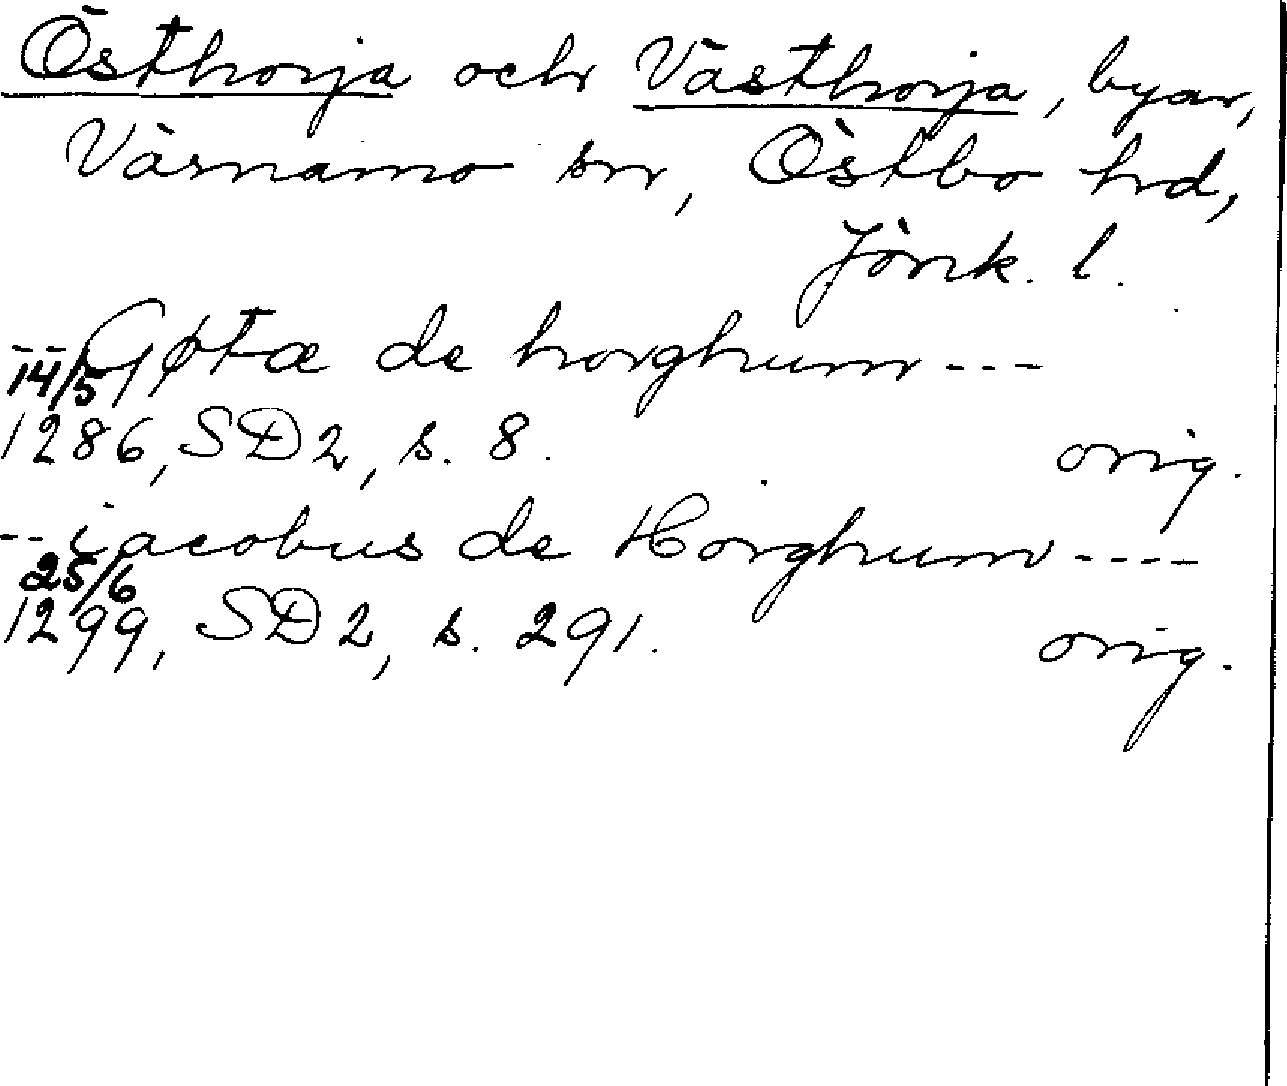 Östhorja och Västhorja, byar,
Värnamo sn, Östbo hd,
Jönk. l.
-- Gøtæ de horghum ---
14/5
1286, SD 2, s. 8. orig.
-- iacobus de Horghum ----
25/6
1299, SD 2, s. 291. orig.